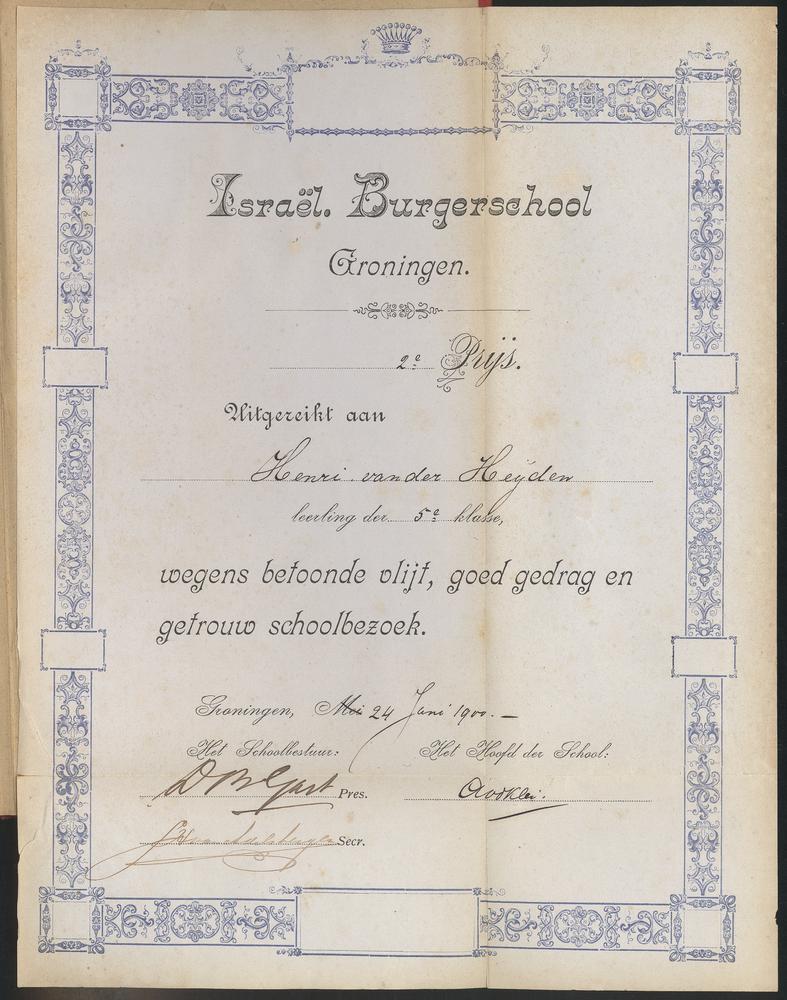 Israël. Burgerschool
Groningen.
2e Prijs.
Uitgereikt aan
Henri van der Heijden
leerling der 5e klasse,
wegens betoonde vlijt, goed gedrag en
getrouw schoolbezoek.
Groningen, Mei 24 Juni 1900. —
Het Schoolbestuur: Het Hoofd der School:
Pres.
Secr.